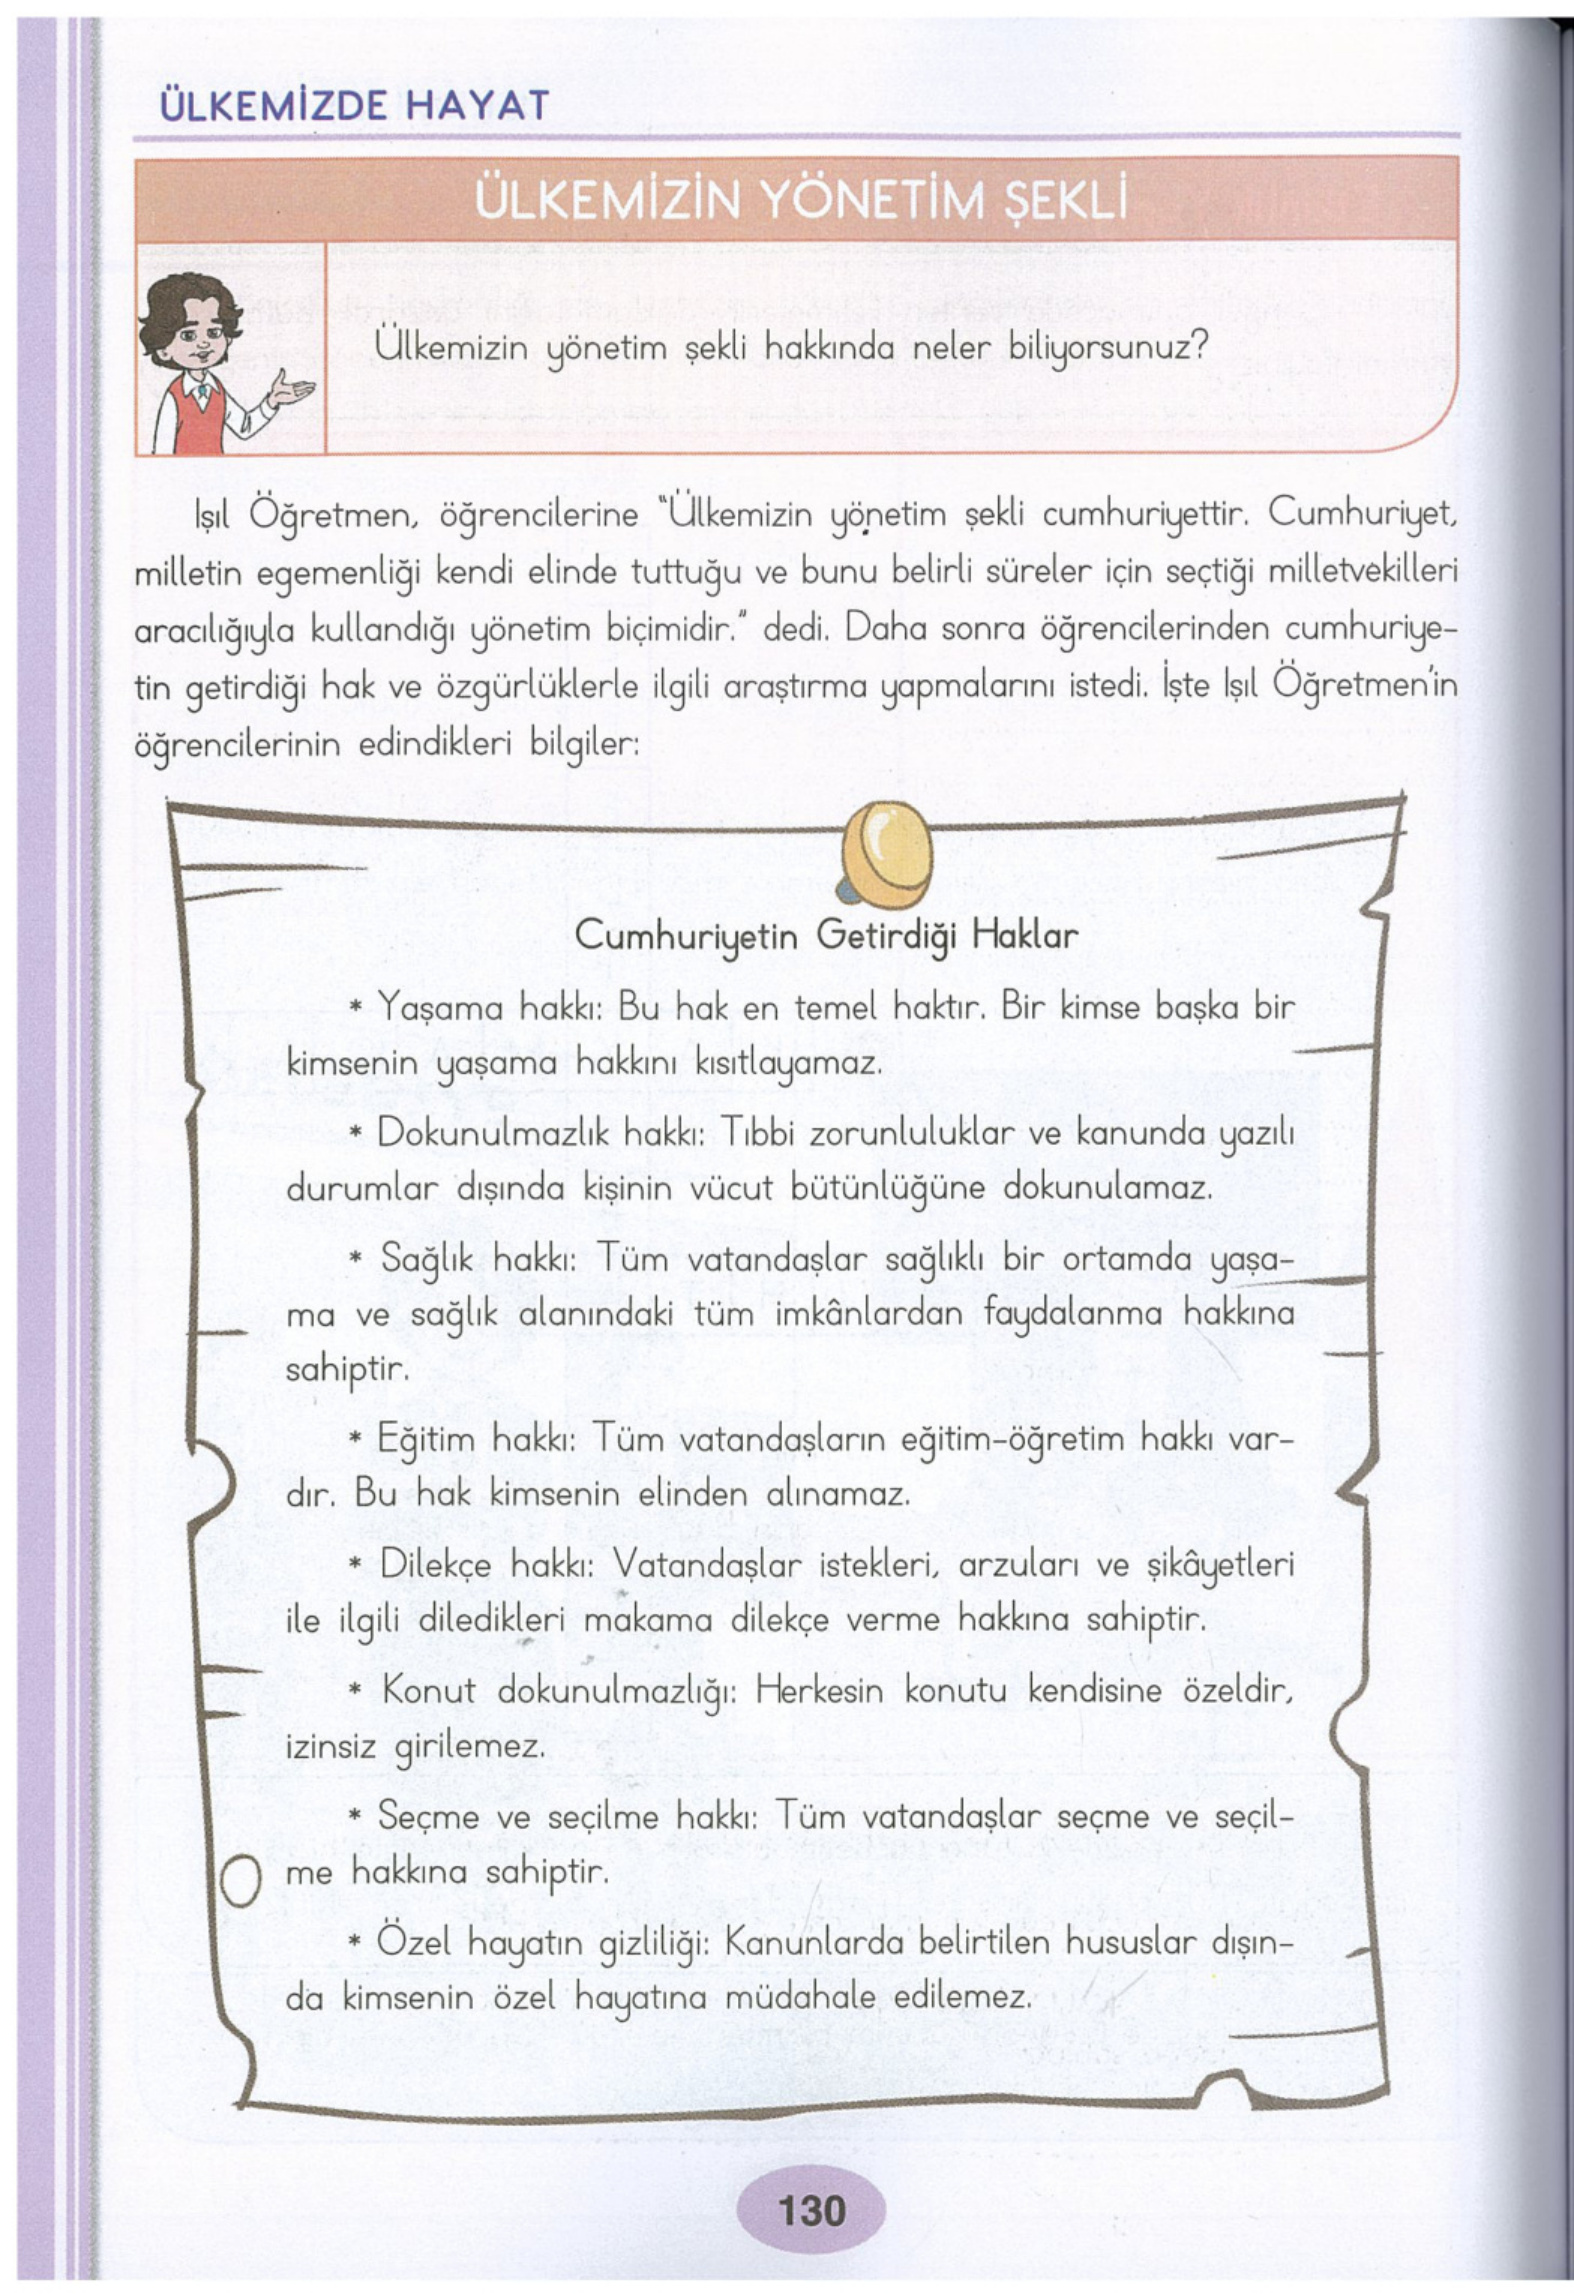 ÜLKEMİZDE HAYAT
ÜLKEMİZİN YÖNETİM ŞEKLİ
Ülkemizin yönetim şekli hakkında neler biliyorsunuz?
Işıl Öğretmen, öğrencilerine "Ülkemizin yönetim şekli cumhuriyettir. Cumhuriyet,
milletin egemenliği kendi elinde tuttuğu ve bunu belirli süreler için seçtiği milletvekilleri
aracılığıyla kullandığı yönetim biçimidir." dedi. Daha sonra öğrencilerinden cumhuriye-
tin getirdiği hak ve özgürlüklerle ilgili araştırma yapmalarını istedi. İşte Işıl Öğretmen'in
öğrencilerinin edindikleri bilgiler:
Cumhuriyetin Getirdiği Haklar
* Yaşama hakkı: Bu hak en temel haktır. Bir kimse başka bir
kimsenin yaşama hakkını kısıtlayamaz.
* Dokunulmazlık hakkı: Tıbbi zorunluluklar ve kanunda yazılı
durumlar dışında kişinin vücut bütünlüğüne dokunulamaz.
* Sağlık hakkı: Tüm vatandaşlar sağlıklı bir ortamda yaşa-
ma ve sağlık alanındaki tüm imkânlardan faydalanma hakkına
sahiptir.
* Eğitim hakkı: Tüm vatandaşların eğitim-öğretim hakkı var-
dır. Bu hak kimsenin elinden alınamaz.
* Dilekçe hakkı: Vatandaşlar istekleri, arzuları ve şikâyetleri
ile ilgili diledikleri makama dilekçe verme hakkına sahiptir.
* Konut dokunulmazlığı: Herkesin konutu kendisine özeldir,
izinsiz girilemez.
* Seçme ve seçilme hakkı: Tüm vatandaşlar seçme ve seçil-
me hakkına sahiptir.
* Özel hayatın gizliliği: Kanunlarda belirtilen hususlar dışın-
da kimsenin özel hayatına müdahale edilemez.
130